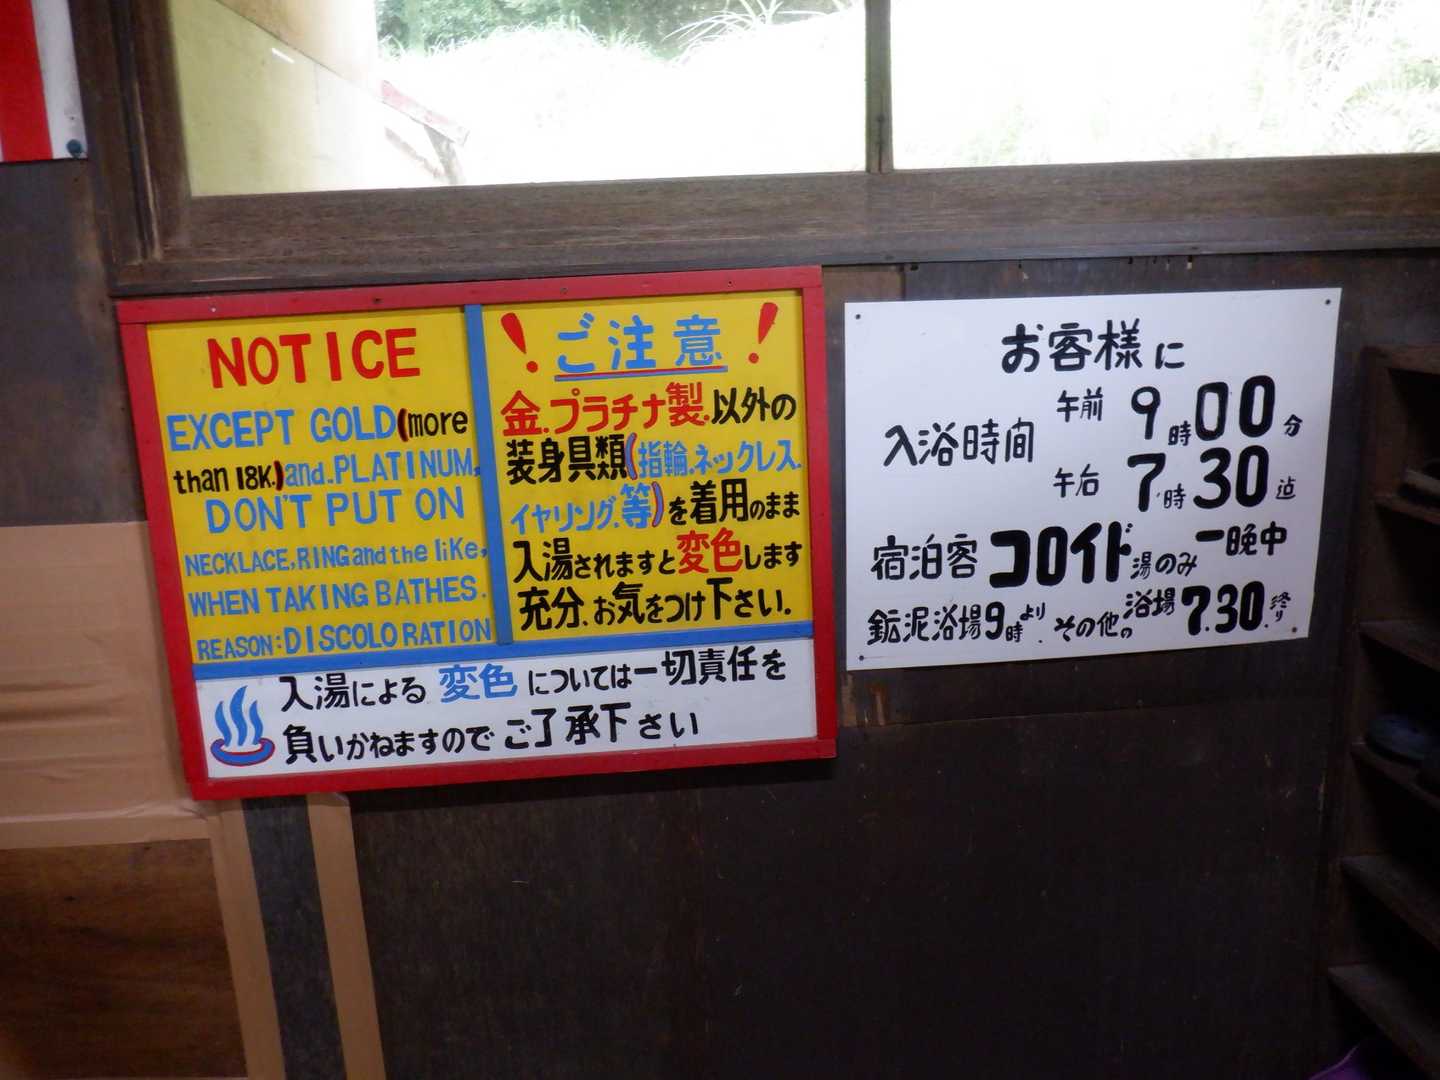 NOTICE
EXCEPT GOLD(more
than 18K.)and.PLATINUM,
DON'T PUT ON
NECKLACE,RING and the like,
WHEN TAKING BATHES.
REASON:DISCOLORATION
!ご注意!
金.プラチナ製.以外の
装身具類(指輪.ネックレス.
イヤリング.等)を着用のまま
入湯されますと変色します
充分、お気をつけ下さい.
入湯による変色については一切責任を
負いかねますのでご了承下さい
お客様に
入浴時間 午前 9時00分
午后 7時30迠
宿泊客コロイド湯のみ一晩中
鉱泥浴場9時より.その他の浴場7.30.終り